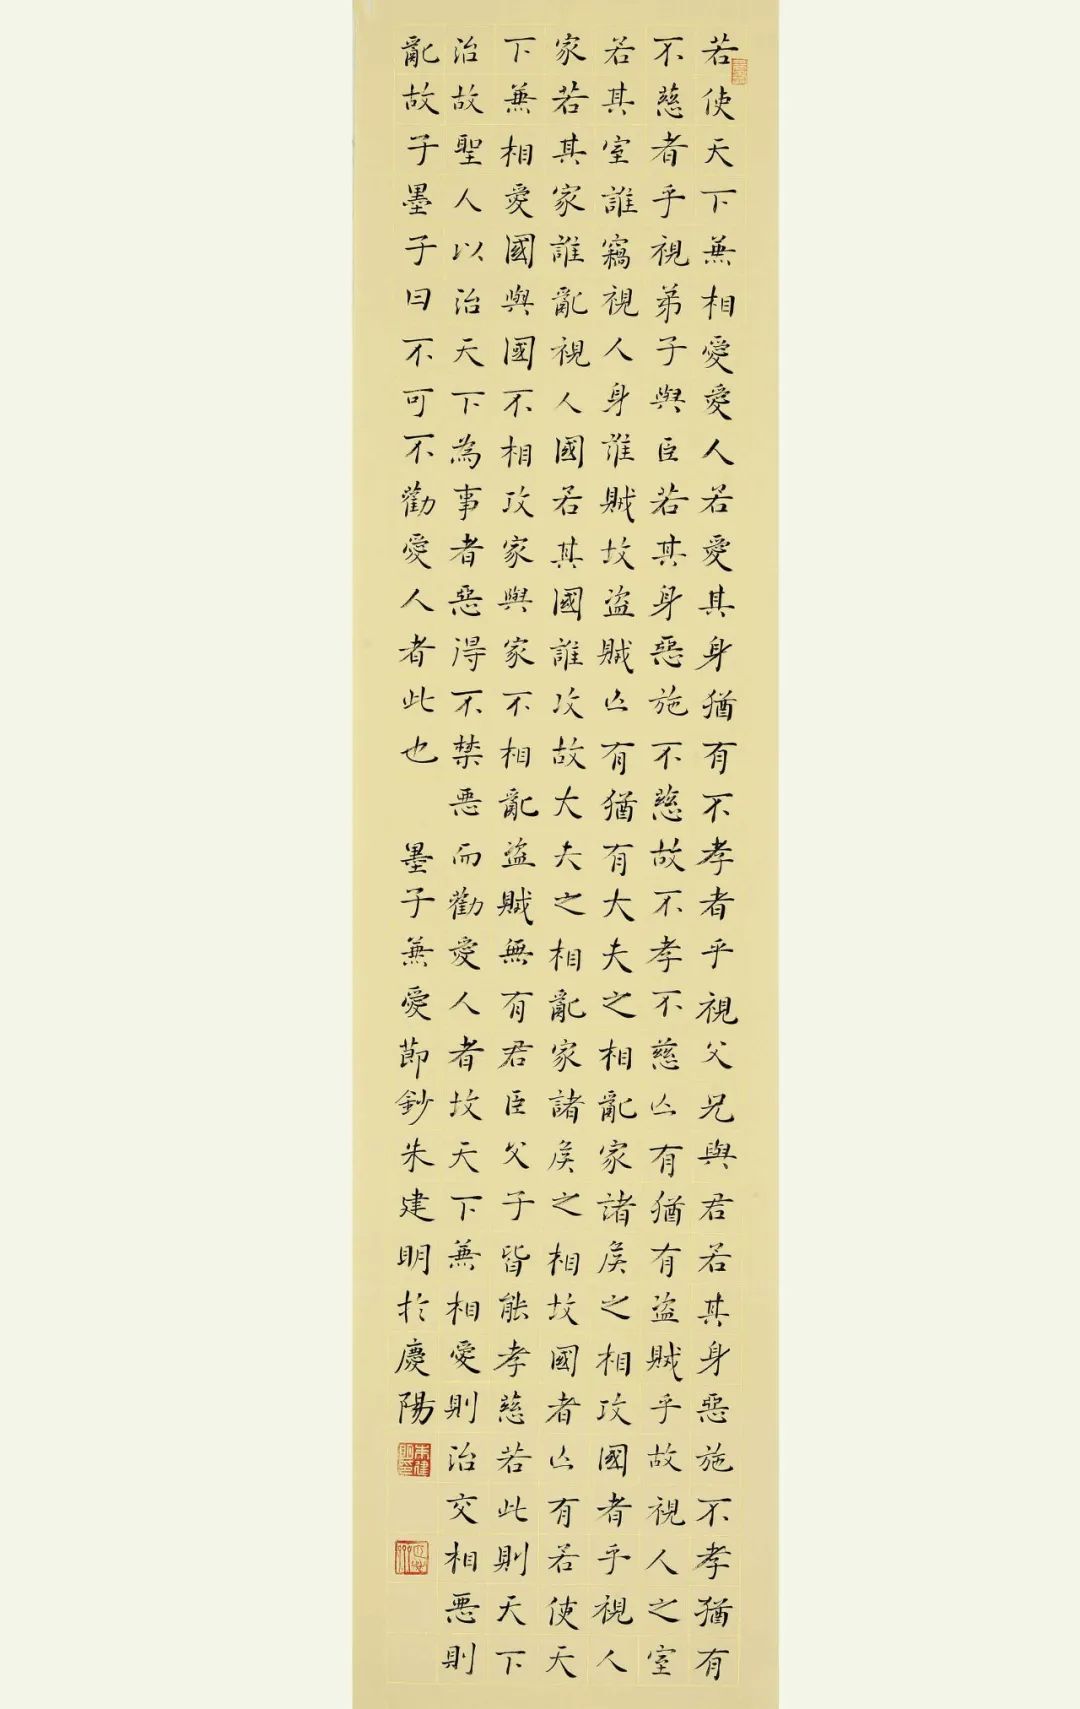 若使天下兼相愛愛人若愛其身猶有不孝者乎視父兄與君若其身惡施不孝猶有
不慈者乎視弟子與臣若其身惡施不慈故不孝不慈亡有猶有盜賊乎故視人之室
若其室誰竊視人身誰賊故盜賊亡有猶有大夫之相亂家諸侯之相攻國者乎視人
家若其家誰亂視人國若其國誰攻故大夫之相亂家諸侯之相攻國者亡有若使天
下兼相愛國與國不相攻家與家不相亂盜賊無有君臣父子皆能孝慈若此則天下
治故聖人以治天下為事者惡得不禁惡而勸愛人者故天下兼相愛則治交相惡則
亂故子墨子曰不可不勸愛人者此也 墨子兼愛節鈔朱建明於慶陽
朱建明印